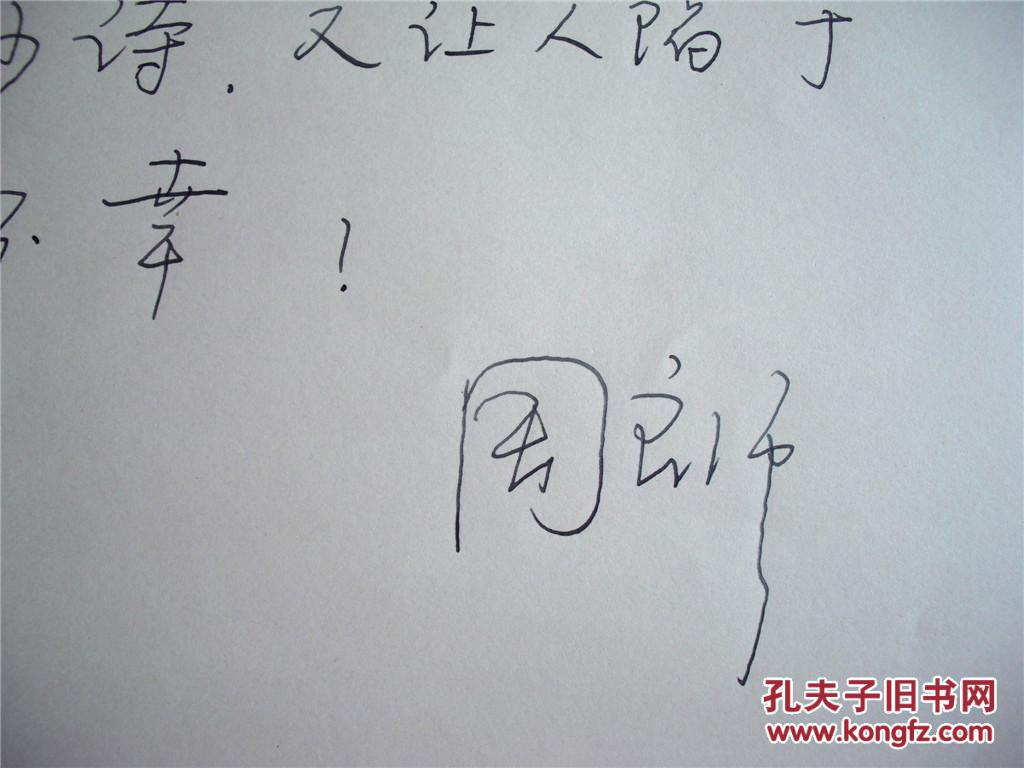 诗. 又让人陷于
不幸!
周良沛
孔夫子旧书网
www.kongfz.com